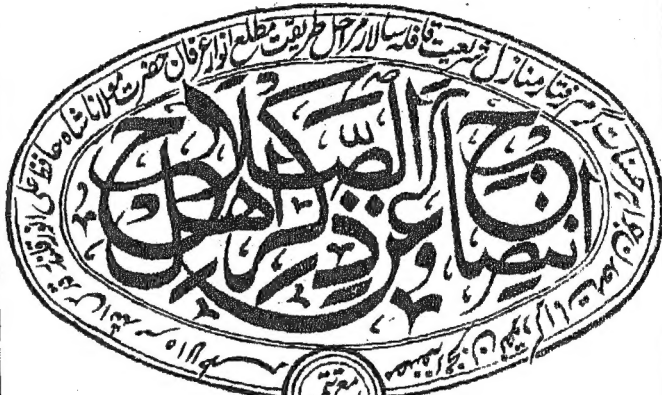 گرم رفتار منازل شریعت قافلہ سالار مراحل طریقت مطلع انوار عرفان حضرت مولانا شاہ حافظ علی انور قلندر قدس اللہ سرہ الاطہر
انتصاح عن ذکر اهل الصلاح